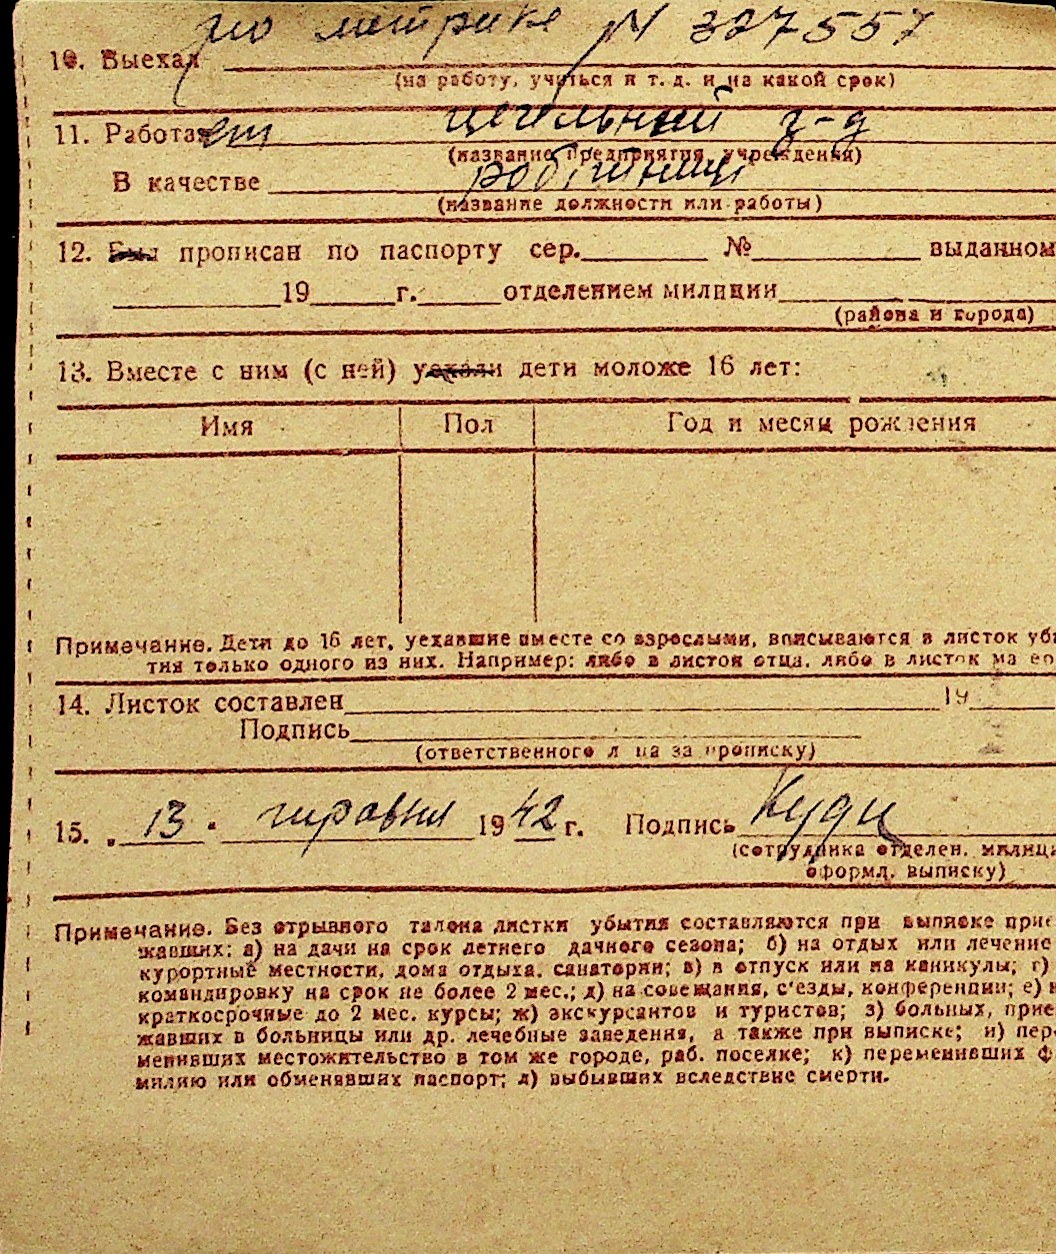 по метрике № 327557
10. Выехал
(на работу, учиться и т. д. и на какой срок)
11. Работает цегельний з-д
(название предприятия, учреждения)
В качестве робітниці
(название должности или работы)
12. Был прописан по паспорту сер. № выданном
19 г. отделением милиции
(района и города)
13. Вместе с ним (с ней) уехали дети моложе 16 лет:
Имя Пол Год и месяц рождения
Примечание. Дети до 16 лет, уехавшие вместе со взрослыми, вписываются в листок убы
тия только одного из них. Например: либо в листок отца, либо в листок ма ер
14. Листок составлен 19
Подпись
(ответственного л ца за прописку)
15. „13" травня 1942 г. Подпись
(сотрудника отделен. милици
оформл. выписку)
Примечание. Без отрывного талона листки убытия составляются при выписке прие
жавших: а) на дачи на срок летнего дачного сезона; б) на отдых или лечение
курортные местности, дома отдыха, санатории; в) в отпуск или на каникулы; г)
командировку на срок не более 2 мес.; д) на совещания, с'езды, конференции; е) н
краткосрочные до 2 мес. курсы; ж) экскурсантов и туристов; з) больных, прие
жавших в больницы или др. лечебные заведения, а также при выписке; и) пер
менивших местожительство в том же городе, раб. поселке; к) переменивших ф
милию или обменявших паспорт; л) выбывших вследствие смерти.